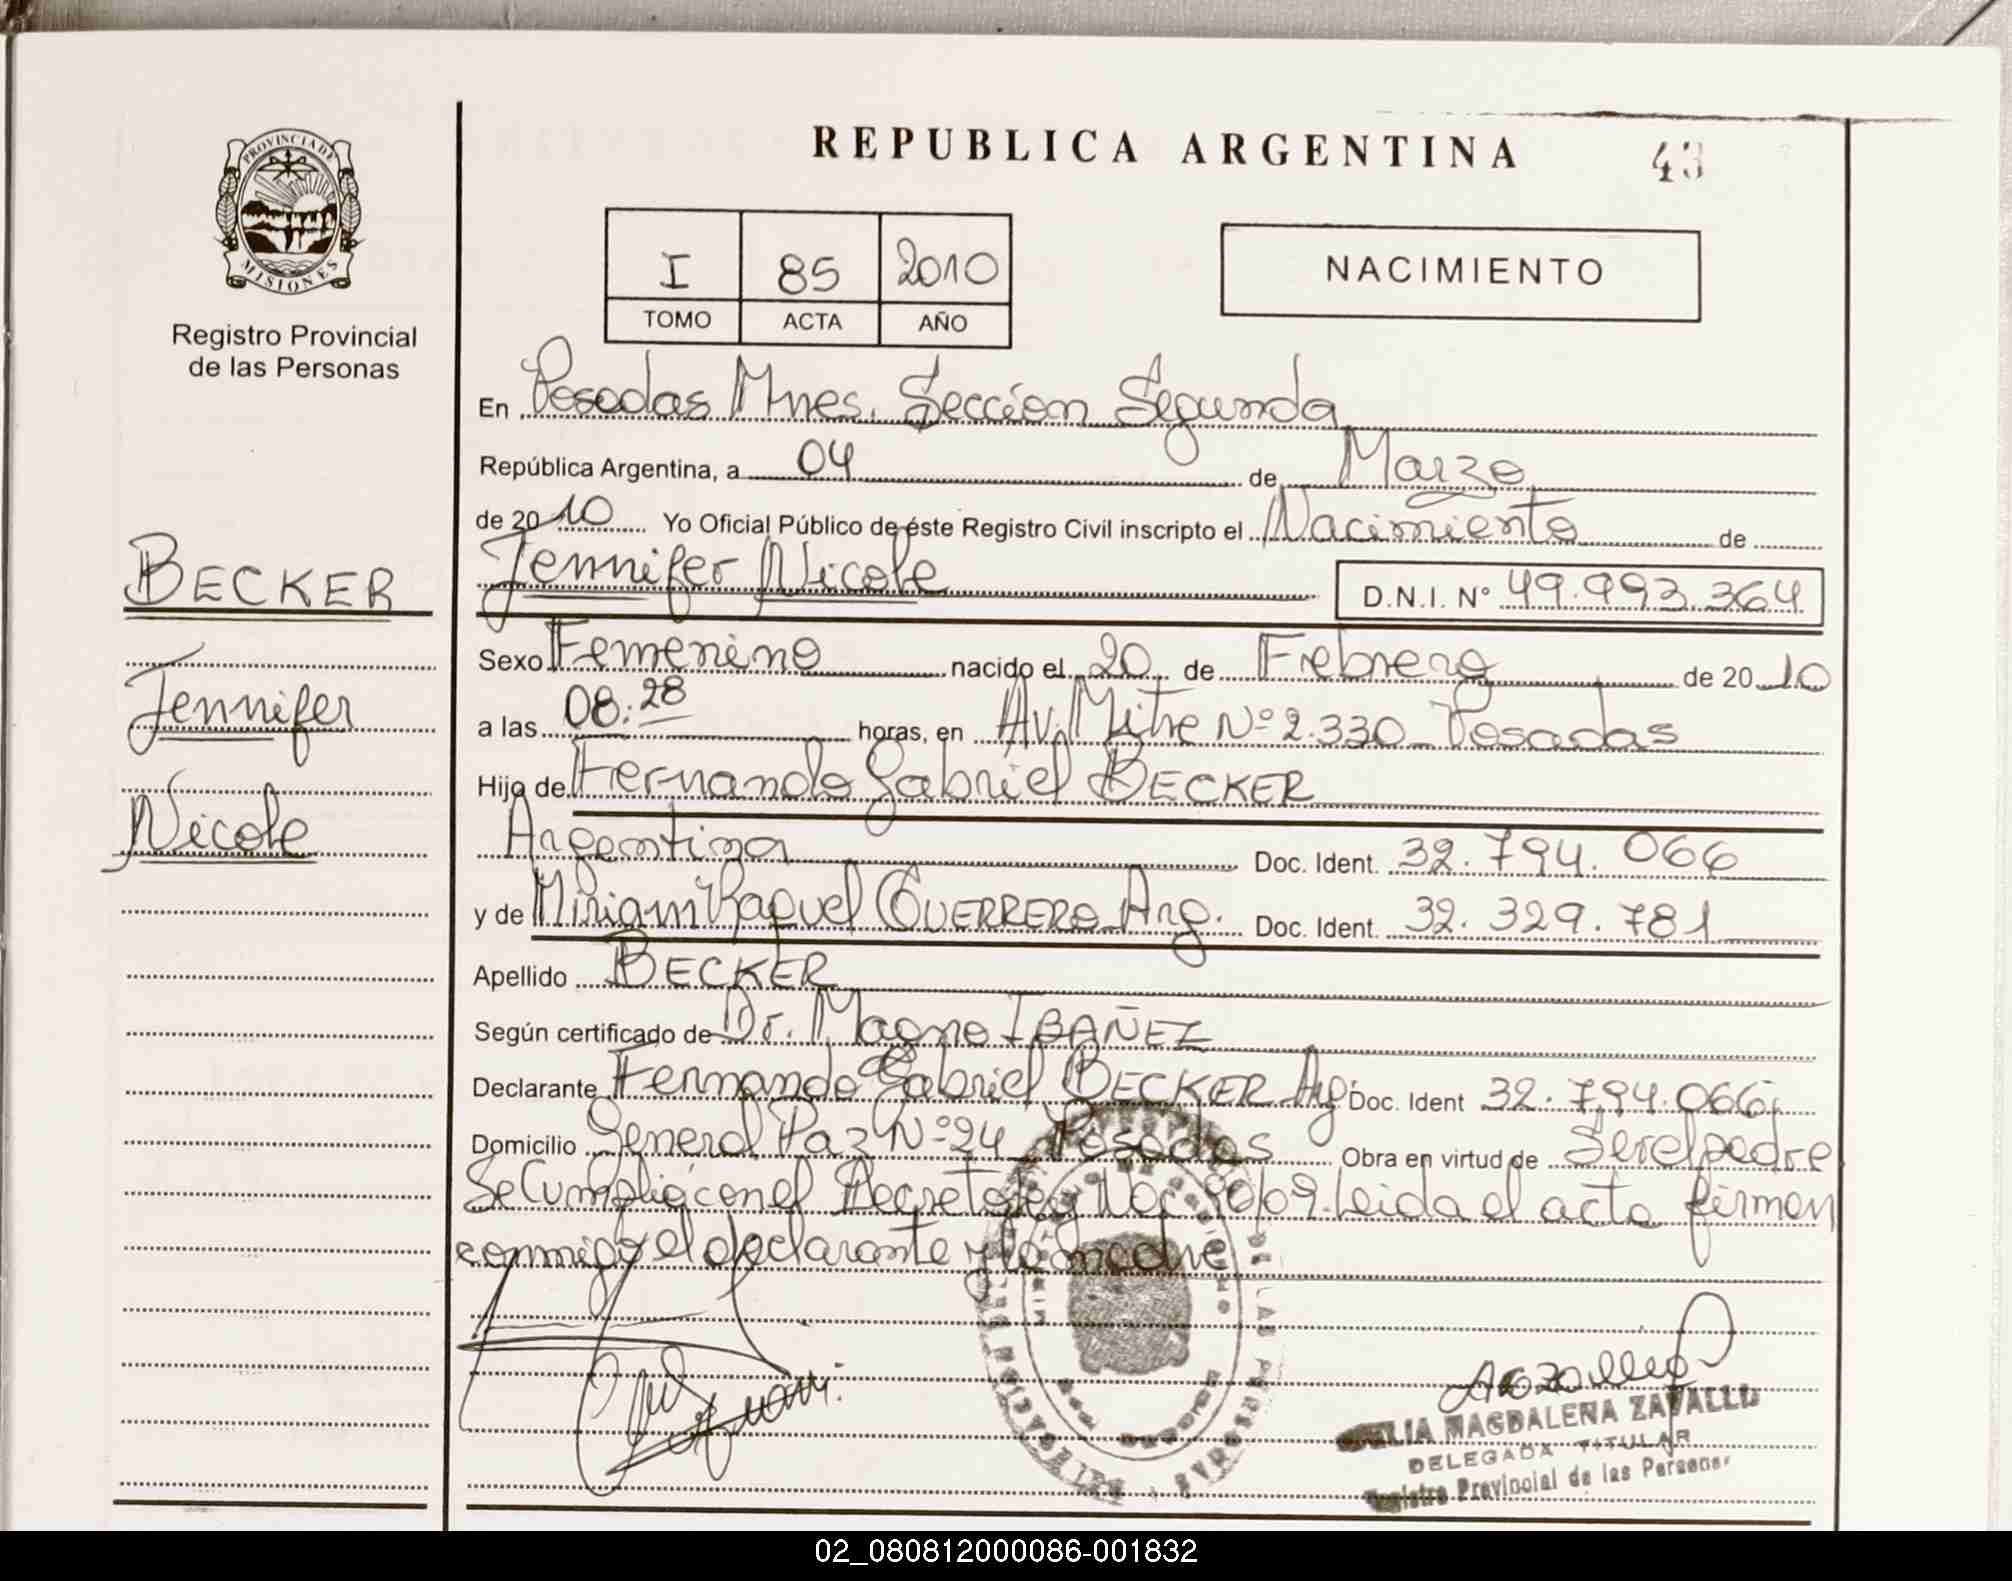 PROVINCIA DE
MISIONES
Registro Provincial
de las Personas
BECKER
Jennifer
Nicole
REPUBLICA ARGENTINA 43
I 85 2010
TOMO ACTA AÑO
NACIMIENTO
En Posadas Mnes. Sección Segunda
República Argentina, a 04 de Marzo
de 2010 Yo Oficial Público de éste Registro Civil inscripto el Nacimiento de
Jennifer Nicole D.N.I. N° 49.993.364
Sexo Femenino nacido el 20 de Febrero de 2010
a las 08:28 horas, en Av. Mitre Nº 2.330 Posadas
Hijo de Fernando Gabriel BECKER
Argentina Doc. Ident. 32.794.066
y de Miriam Raquel GUERRERO Arg. Doc. Ident. 32.329.781
Apellido BECKER
Según certificado de Dr. Magno IBAÑEZ
Declarante Fernando Gabriel BECKER Arg. Doc. Ident 32.794.066
Domicilio General Paz Nº 24 Posadas Obra en virtud de Ser el padre
Se Cumplió con el Decreto Ley Nac. 90/09. Leida el acta firman
conmigo el declarante y la madre
MAGDALENA ZAVALLO
DELEGADA TITULAR
Registro Provincial de las Personas
02_080812000086-001832